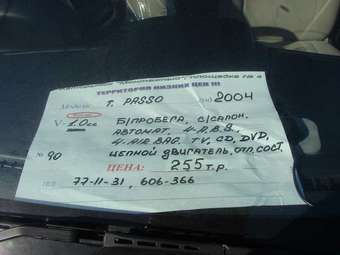 площадка № 4
ТЕРРИТОРИЯ НИЗКИХ ЦЕН !!!
T. PASSO 2004
V- 1.0сс Б/ПРОБЕГА, С/САЛОН.
АВТОМАТ, 4-A.B.S.
4. AIR BAG. TV, CD, DVD,
№ 90 ЦЕПНОЙ ДВИГАТЕЛЬ, ОТЛ. СОСТ.
ЦЕНА: 255 т.р.
тел. 77-11-31, 606-366